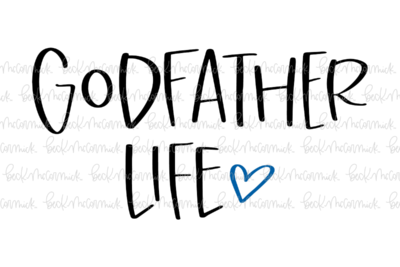 GODFATHER
LIFE